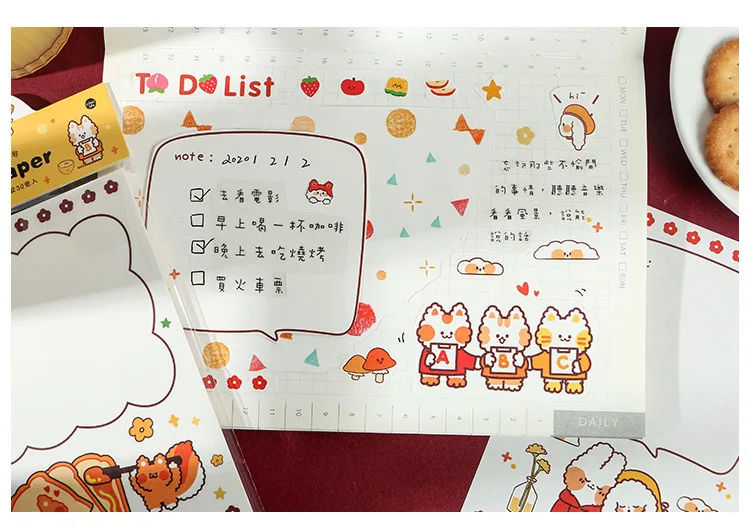 TO DO List
note: 20201212
去看電影
早上喝一杯咖啡
晚上去吃燒烤
買火車票
hi~
的事情，聽聽音樂
看看風景，說能
說的話
A B C
DAILY
MON TUE WED THU FRI SAT SUN
aper